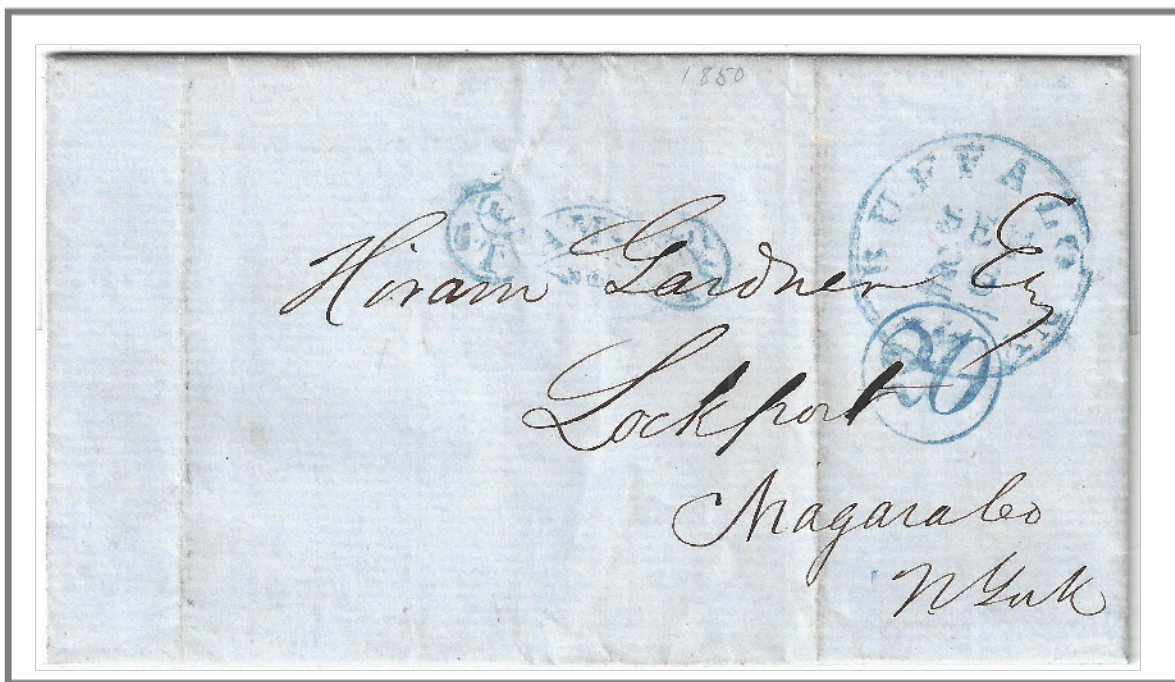 1850
BUFFALO
SEP
20
Hiram Gardner Esq
Lockport
Niagara Co
N York